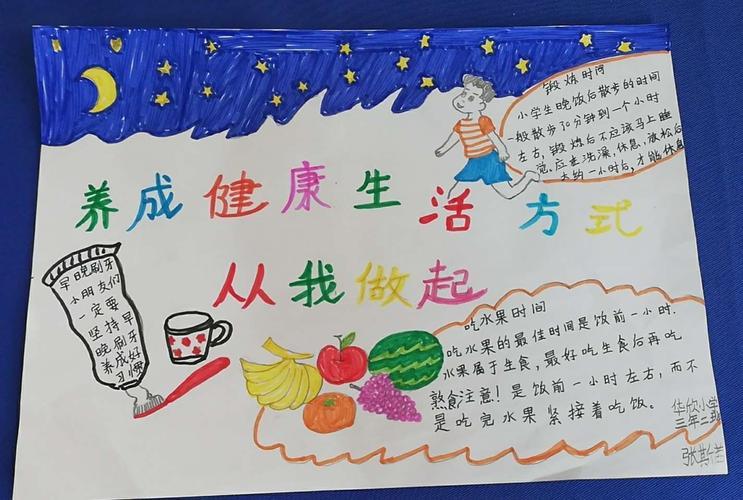 锻炼时间
小学生晚饭后散步的时间
一般散步30分钟到一个小时
左右,锻炼后不应该马上睡
觉.应去洗澡,休息,放松后
大约一小时后,才能休息
养成健康生活方式
从我做起
早晚刷牙
小朋友们
一定要
坚持早
晚刷牙
养成好
习惯
吃水果时间
吃水果的最佳时间是饭前一小时.
水果属于生食,最好吃生食后再吃
熟食注意!是饭前一小时左右,而不
是吃完水果紧接着吃饭。
华欣小学
三年二班
张